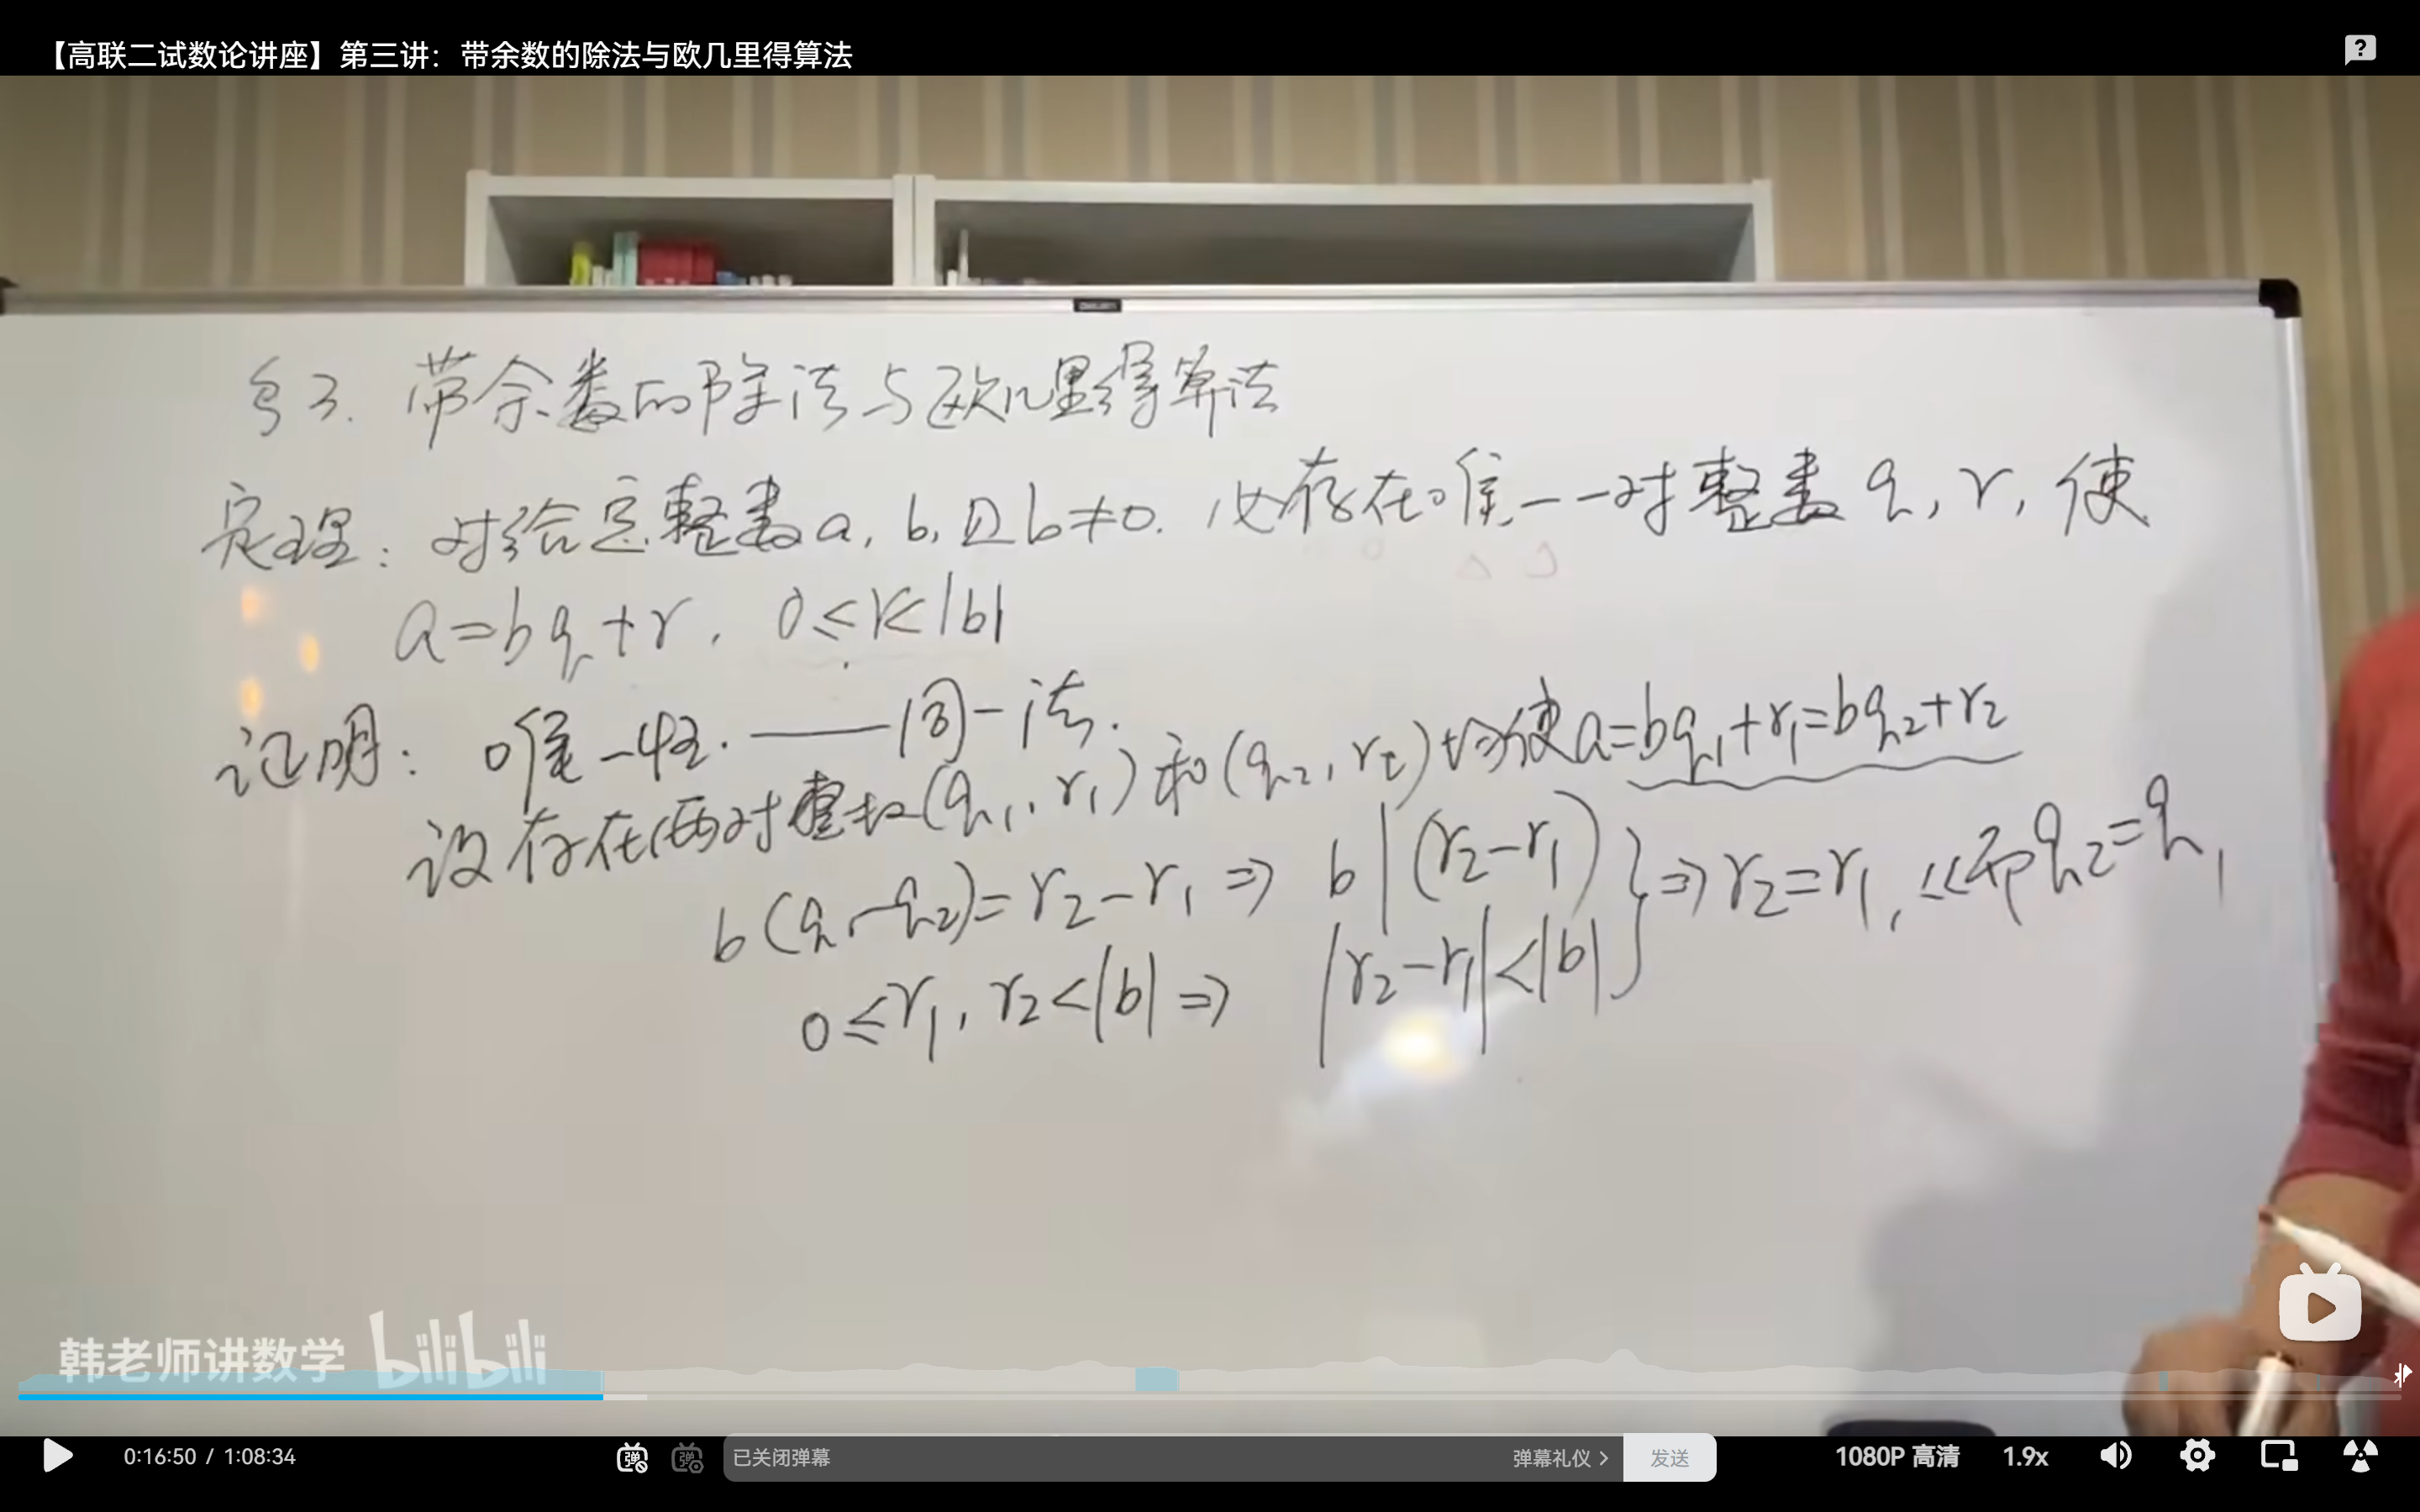 【高联二试数论讲座】第三讲：带余数的除法与欧几里得算法
§3. 带余数的除法与欧几里得算法
定理：对给定整数a, b, 且b≠0. 必存在唯一一对整数 q, r, 使
a=bq+r, 0≤r<|b|
证明：唯一性. ——同一法.
设存在两对整数(q₁, r₁)和(q₂, r₂)均使a=bq₁+r₁=bq₂+r₂
b(q₁-q₂)=r₂-r₁ ⇒ b|(r₂-r₁)
0≤r₁, r₂<|b| ⇒ |r₂-r₁|<|b|
} ⇒ r₂=r₁, 从而q₂=q₁
韩老师讲数学 bilibili
0:16:50 / 1:08:34
弹
弹
已关闭弹幕
弹幕礼仪 >
发送
1080P 高清
1.9x